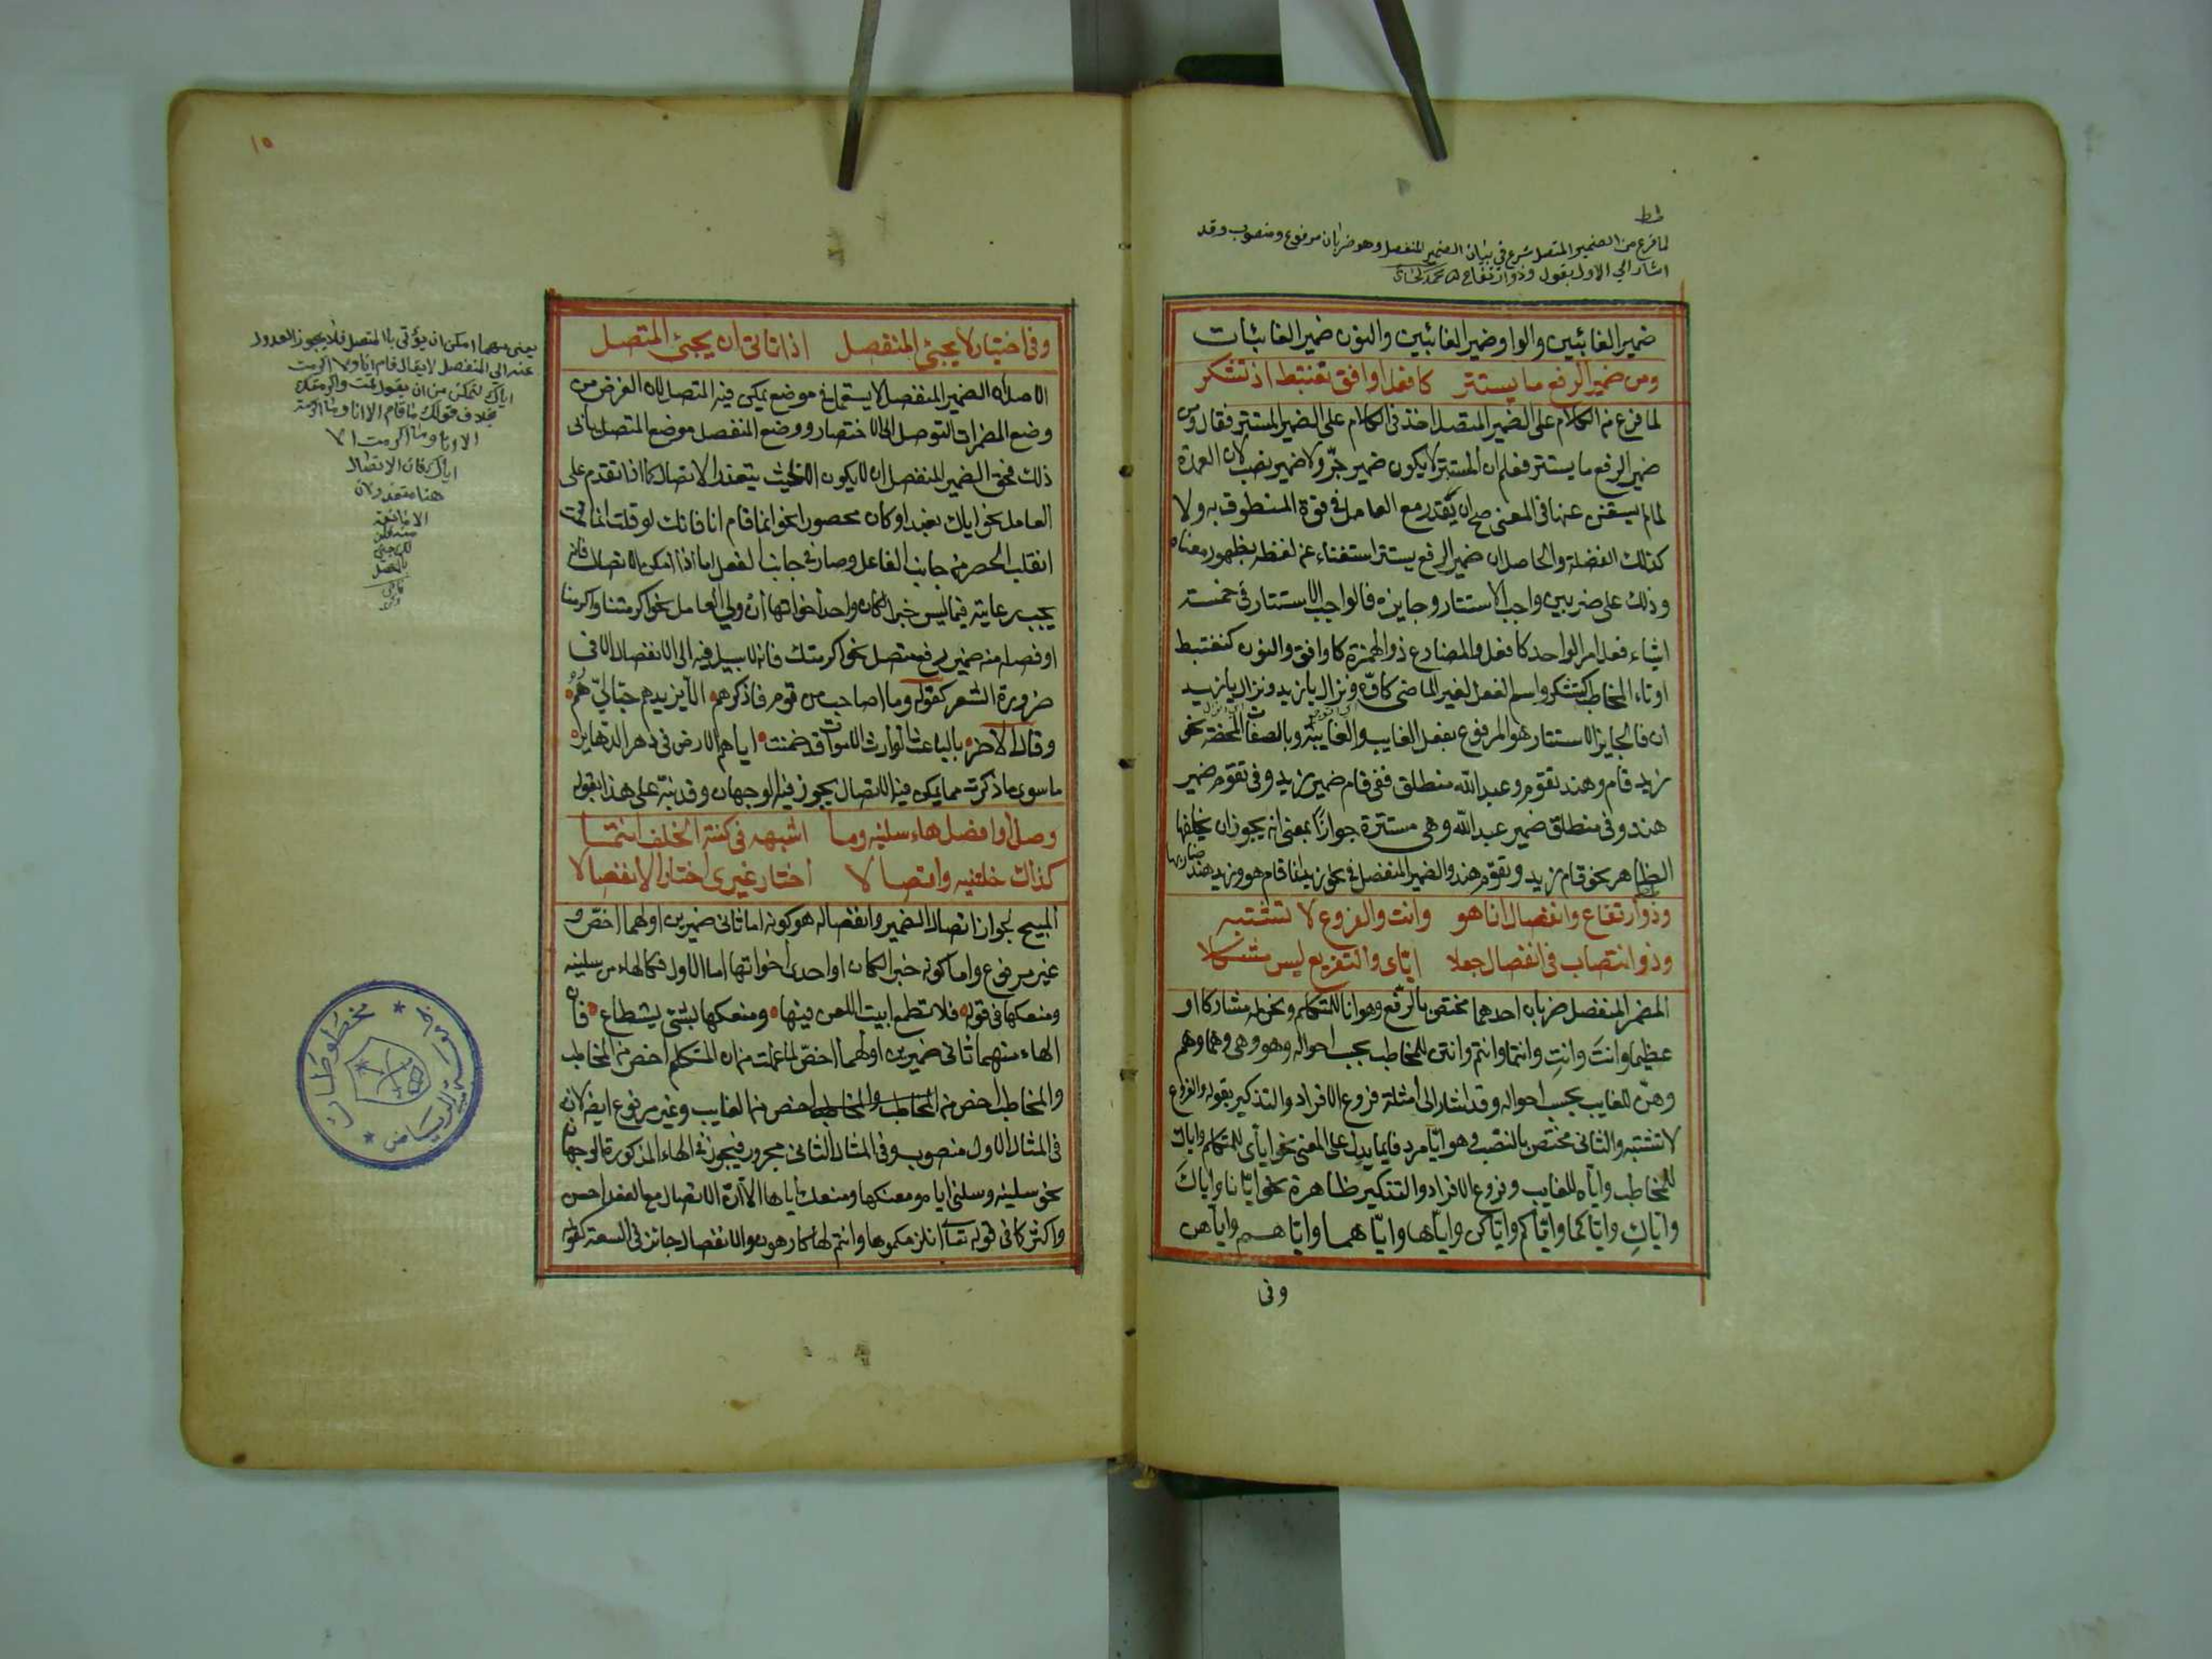 لما فرغ من الضمير المتصل شرع في بيان الضمير المنفصل وهو ضربان مرفوع ومنصوب وقد
اشار الي الاول بقوله وذو ارتفاع
ضمير الغائبين والواو ضمير الغائبين والنون ضمير الغائبات
ومن ضمير الرفع ما يستتر كافعل اوافق نغتبط اذ تشكر
لما فرغ من الكلام على الضمير المتصل اخذ في الكلام على الضمير المستتر فقال ومن
ضمير الرفع ما يستتر فعلم ان المستتر لا يكون ضمير جرّ ولا ضمير نصب لان العمدة
لما لم يستغن عنها في المعنى صح ان يقدر مع العامل في قوة المنطوق به ولا
كذلك الفضلة والحاصل ان ضمير الرفع يستتر استغناء عن لفظه بظهور معناه
وذلك على ضربين واجب الاستتار وجايزه فالواجب الاستتار في خمسة
اشياء فعل امر الواحد كافعل والمضارع ذو الهمزة كاوافق والنون كنغتبط
او تاء المخاطب كتشكر واسم الفعل لغير الماضي كاوّه ونزال يا زيد ونزال يا زيد
ان فالجايز الاستتار هو المرفوع بفعل الغايب والغايبة وبالصفات المحضة نحو
زيد قام وهند تقوم وعبد الله منطلق ففي قام ضمير زيد وفي تقوم ضمير
هند وفي منطلق ضمير عبد الله وهي مستترة جوازًا بمعنى انه يجوز ان يخلفها
الظاهر نحو قام زيد وتقوم هند والضمير المنفصل في نحو زيد انما قام هو وزيد هند ضاربها
وذو ارتفاع وانفصال انا هو وانت والفروع لا تشتبه
وذو انتصاب في انفصال جعلا اياي والتفريع ليس مشكلا
المضمر المنفصل ضربان احدهما مختص بالرفع وهو انا للمتكلم ونحن له مشاركا او
عظيما وانتَ وانتِ وانتما وانتم وانتن للمخاطب بحسب احواله وهو وهي وهما وهم
وهنّ للغايب بحسب احواله وقد اشار الى امثلة فروع الافراد والتذكير بقوله والفروع
لا تشتبه والثاني مختص بالنصب وهو ايّا مردفا بما يدل على المعنى نحو اياي للمتكلم واياك
للمخاطب واياه للغايب وفروع الافراد والتذكير ظاهرة نحو ايانا واياكَ
واياكِ واياكما واياكم واياكن واياها واياهما واياهم واياهن
وفي
١٥
وفي اختيار لا يجيئ المنفصل اذا تاتى ان يجيئ المتصل
الاصل ان الضمير المنفصل لا يستعمل في موضع يمكن فيه المتصل لان الغرض من
وضع المضمرات التوصل الى الاختصار ووضع المنفصل موضع المتصل يأبى
ذلك فحق الضمير المنفصل ان لا يكون الا حيث يتعذر الاتصال كما اذا تقدم على
العامل نحو اياك نعبد او كان محصورا نحو انما قام انا فانك لو قلت انما قمت
انقلب الحصر من جانب الفاعل وصار في جانب الفعل اما اذا امكن الاتصال فانه
يجب رعايته فيما ليس خبرا لكان واحد اخواتها ان ولي العامل نحو اكرمتنا واكرمنا
او فصله منه ضمير رفع متصل نحو اكرمتك فانه لا سبيل فيه الى الانفصال الا في
ضرورة الشعر كقوله وما اصاحب من قوم فاذكرهم الا يزيدهم حبّا اليّ هُمُ
وقال الاخر بالباعث الوارث الاموات قد ضمنت اياهم الارض في دهر الدهارير
ما سوى ما ذكرت مما يمكن فيه الاتصال يجوز فيه الوجهان وقد نبه على هذا بقوله
وصل او افصل هاء سلنيه وما اشبهه في كنته الخلف انتمى
كذاك خلتنيه واتصالا اختار غيري اختار الانفصالا
المبيح لجواز اتصال الضمير وانفصاله هو كونه اما ثاني ضميرين اولهما اخصّ و
غير مرفوع واما كونه خبرا لكان او احدى اخواتها اما الاول فكالهاء من سلنيه
ومنعكها في قوله فلا تطمع ابيت اللعن فيها ومنعكها بشئ يستطاع فان
الهاء منهما ثاني ضميرين اولهما اخصّ لما علمت من ان المتكلم اخص من المخاطب
والمخاطب اخص من المخاطب والمخاطب اخص من الغايب وغير مرفوع ايضا لانه
في المثال الاول منصوب وفي المثال الثاني مجرور فيجوز في الهاء المذكورة الوجهان
نحو سلنيه وسلني اياه ومنعكها ومنعك اياها الا ان الاتصال مع الفعل احسن
واكثر كما في قوله تعالى انلزمكموها وانتم لها كارهون والانفصال جائز في السعة كقوله
يعني مهما امكن ان يؤتى بالمتصل فلا يجوز العدول
عنه الى المنفصل لا يقال قام انا ولا اكرمت
اياك لتمكن من ان يقول قمت واكرمتك
بخلاف قولك ما قام الا انا وما اكرمت
الا اياك
اياك فان الاتصال
هنا متعذر لان
الا مانعة
مخطوطات
الرياض